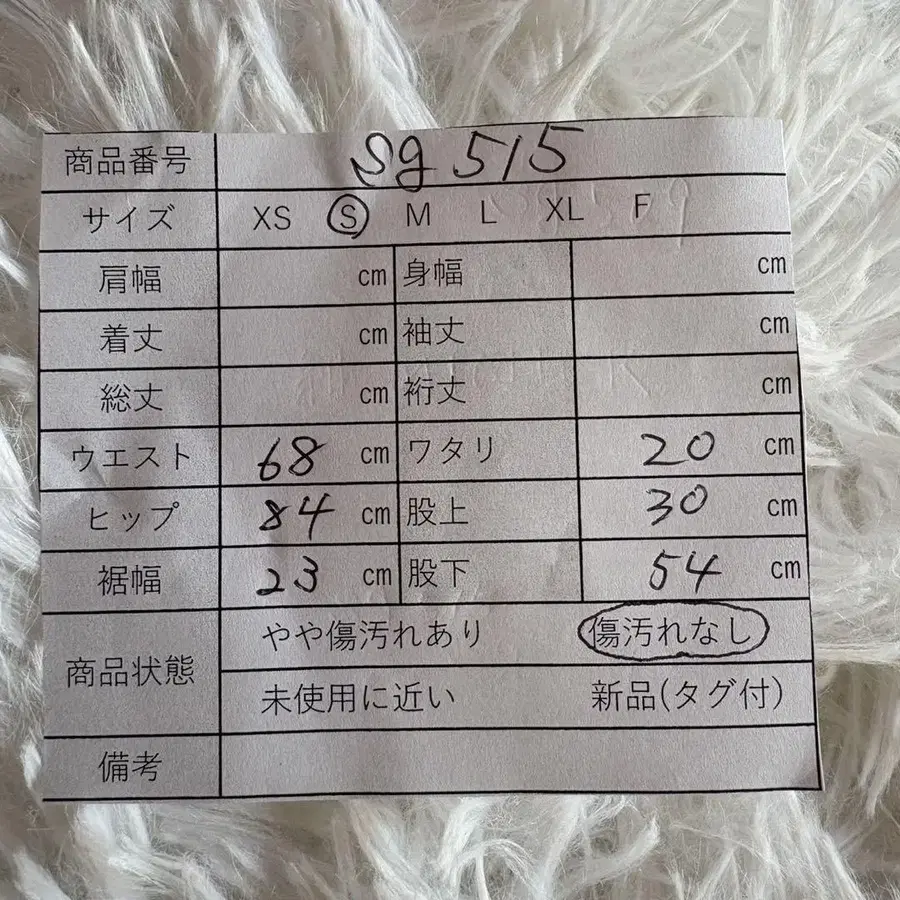 商品番号 sg 515
サイズ XS S M L XL F
肩幅 cm 身幅 cm
着丈 cm 袖丈 cm
総丈 cm 裄丈 cm
ウエスト 68 cm ワタリ 20 cm
ヒップ 84 cm 股上 30 cm
裾幅 23 cm 股下 54 cm
商品状態 やや傷汚れあり 傷汚れなし
未使用に近い 新品(タグ付)
備考